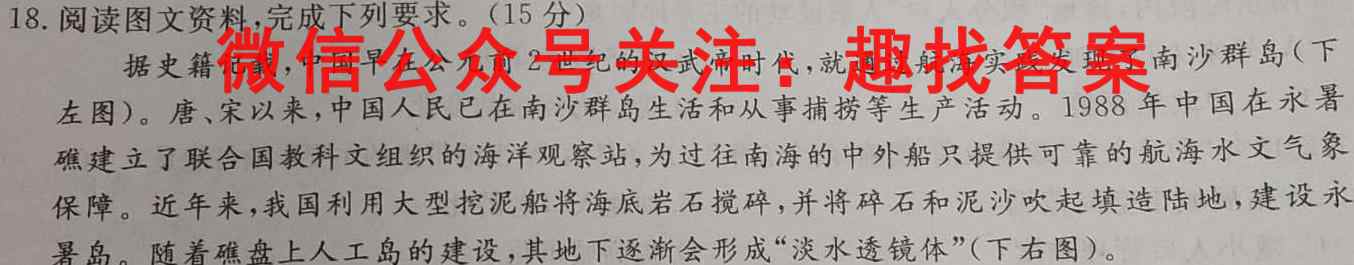 18. 阅读图文资料,完成下列要求。(15 分)
微信公众号关注：趣找答案
据史籍记载,中国早在公元前 2 世纪的汉武帝时代,就通过航海实践发现了南沙群岛(下
左图)。唐、宋以来,中国人民已在南沙群岛生活和从事捕捞等生产活动。1988 年中国在永暑
礁建立了联合国教科文组织的海洋观察站,为过往南海的中外船只提供可靠的航海水文气象
保障。近年来,我国利用大型挖泥船将海底岩石搅碎,并将碎石和泥沙吹起填造陆地,建设永
暑岛。随着礁盘上人工岛的建设,其地下逐渐会形成“淡水透镜体”(下右图)。